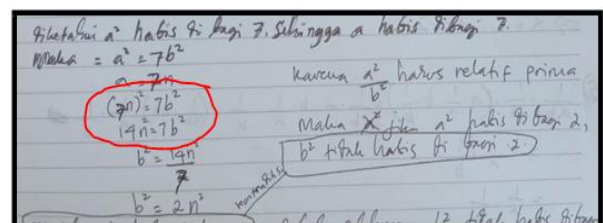 diketahui a² habis di bagi 7, sehingga a habis dibagi 7.
Maka = a² = 7b²
a = 7n
(7n)² = 7b²
14n² = 7b²
b² = 14n²/7
b² = 2n²
karena a²/b² harus relatif prima
Maka jika a² habis di bagi 2,
b² tidak habis di bagi 2.
kontradiksi
12 tidak habis dibagi